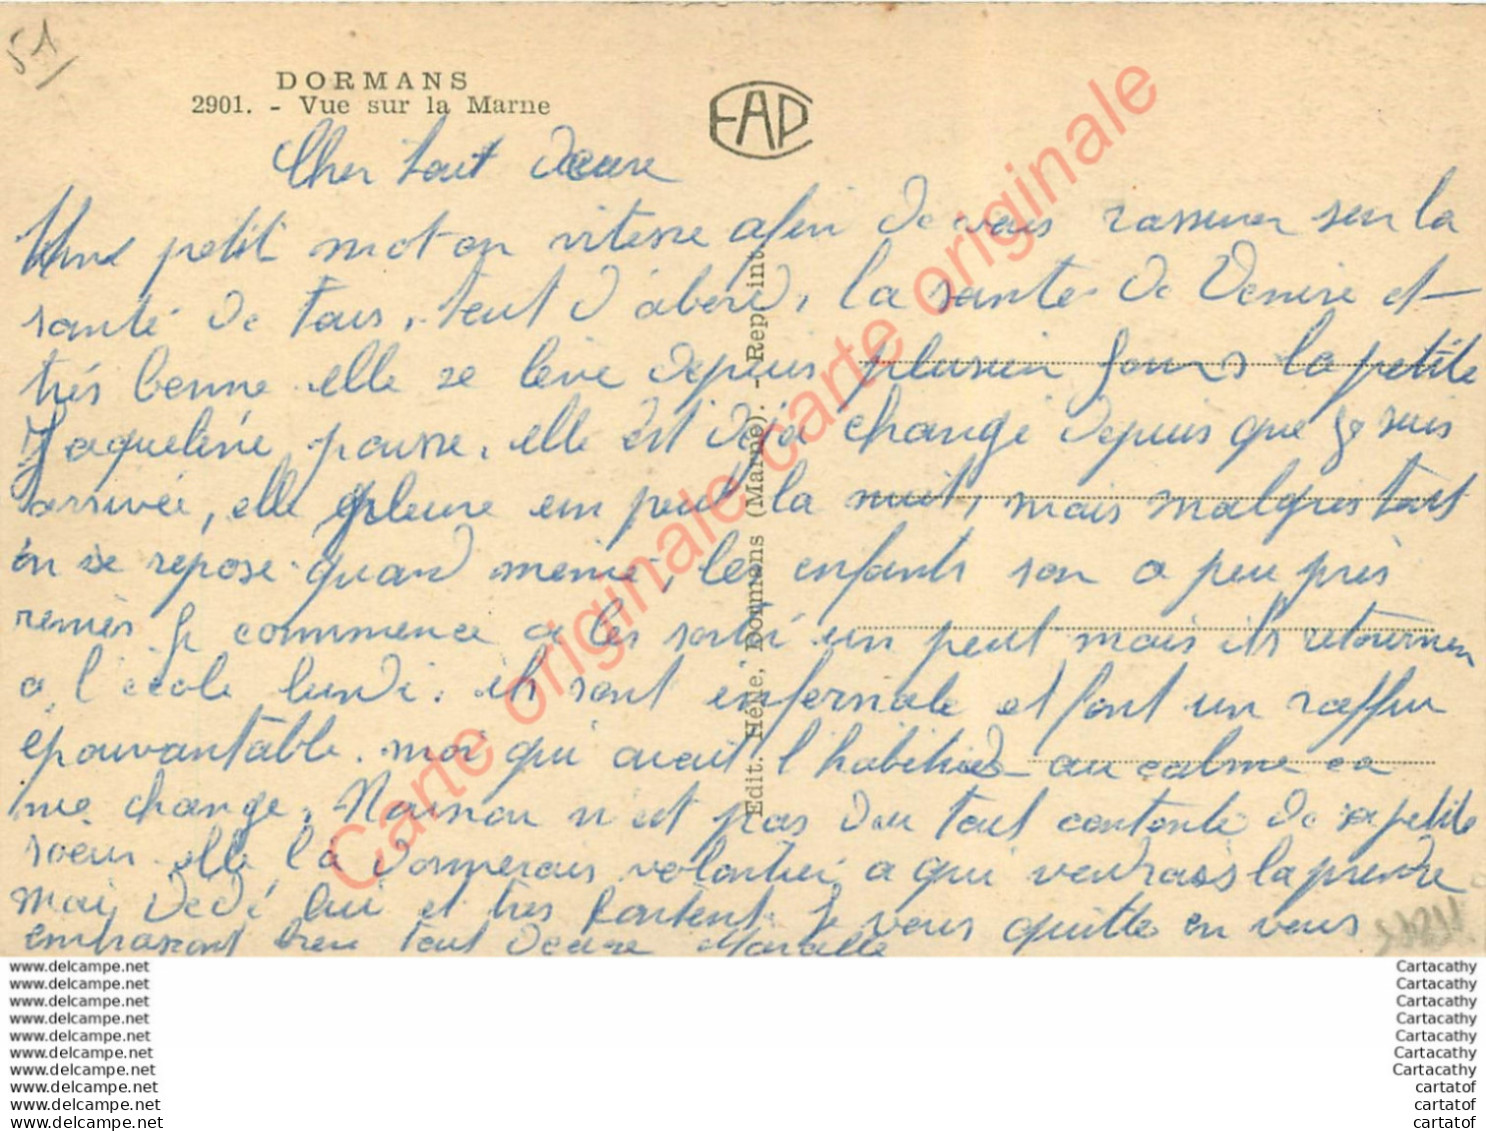 51
DORMANS
2901. - Vue sur la Marne
EAP
Cher tout deux
Une petit mot en vitesse afin de vous rassurer sur la
santé de tous, tout d'abord, la santé de Denise et
très bonne elle se lève depuis plusieu jours la petite
Jaqueline pousse, elle est déjà changé depuis que je suis
arrivée, elle pleure un peut la nuit, mais malgrés tout
on se repose quand même, les enfants son a peu près
remis je commence a les sorti un peut mais ils retournen
a l'école lundi. ils sont infernale et font un raffu
épouvantable. moi qui avait l'habitude au calme ca
me change, Nounou n'est pas du tout contente de sa petite
soeur elle la donnerais volontier a qui voudrais la prendre
mais Dédé lui et très content. Je vous quitte en vous
embrassant bien tout deux Marcelle
Edit. Hélie, Dormans (Marne). - Rep. int.
Carte originale carte originale carte originale
www.delcampe.net
www.delcampe.net
www.delcampe.net
www.delcampe.net
www.delcampe.net
www.delcampe.net
www.delcampe.net
www.delcampe.net
www.delcampe.net
www.delcampe.net
Cartacathy
Cartacathy
Cartacathy
Cartacathy
Cartacathy
Cartacathy
Cartacathy
cartatof
cartatof
cartatof